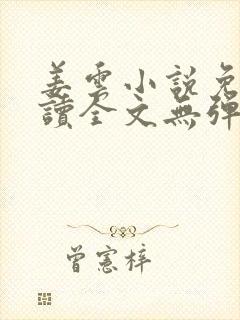 姜雲小說免
讀全文無彈
曾憲梓